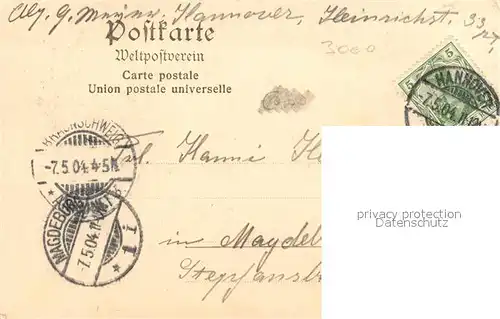 Abs. G. Meyer. Hannover, Heinrichst. 33
Postkarte
3000
Weltpostverein
Carte postale
Union postale universelle
5 5
HANNOVER
-7.5.04
BRAUNSCHWEIG
-7.5.04.4-5N
Frl. Hanni
privacy protection
Datenschutz
MAGDEBURG
7.5.04
* 1 i
in Magdeb
Stephansb